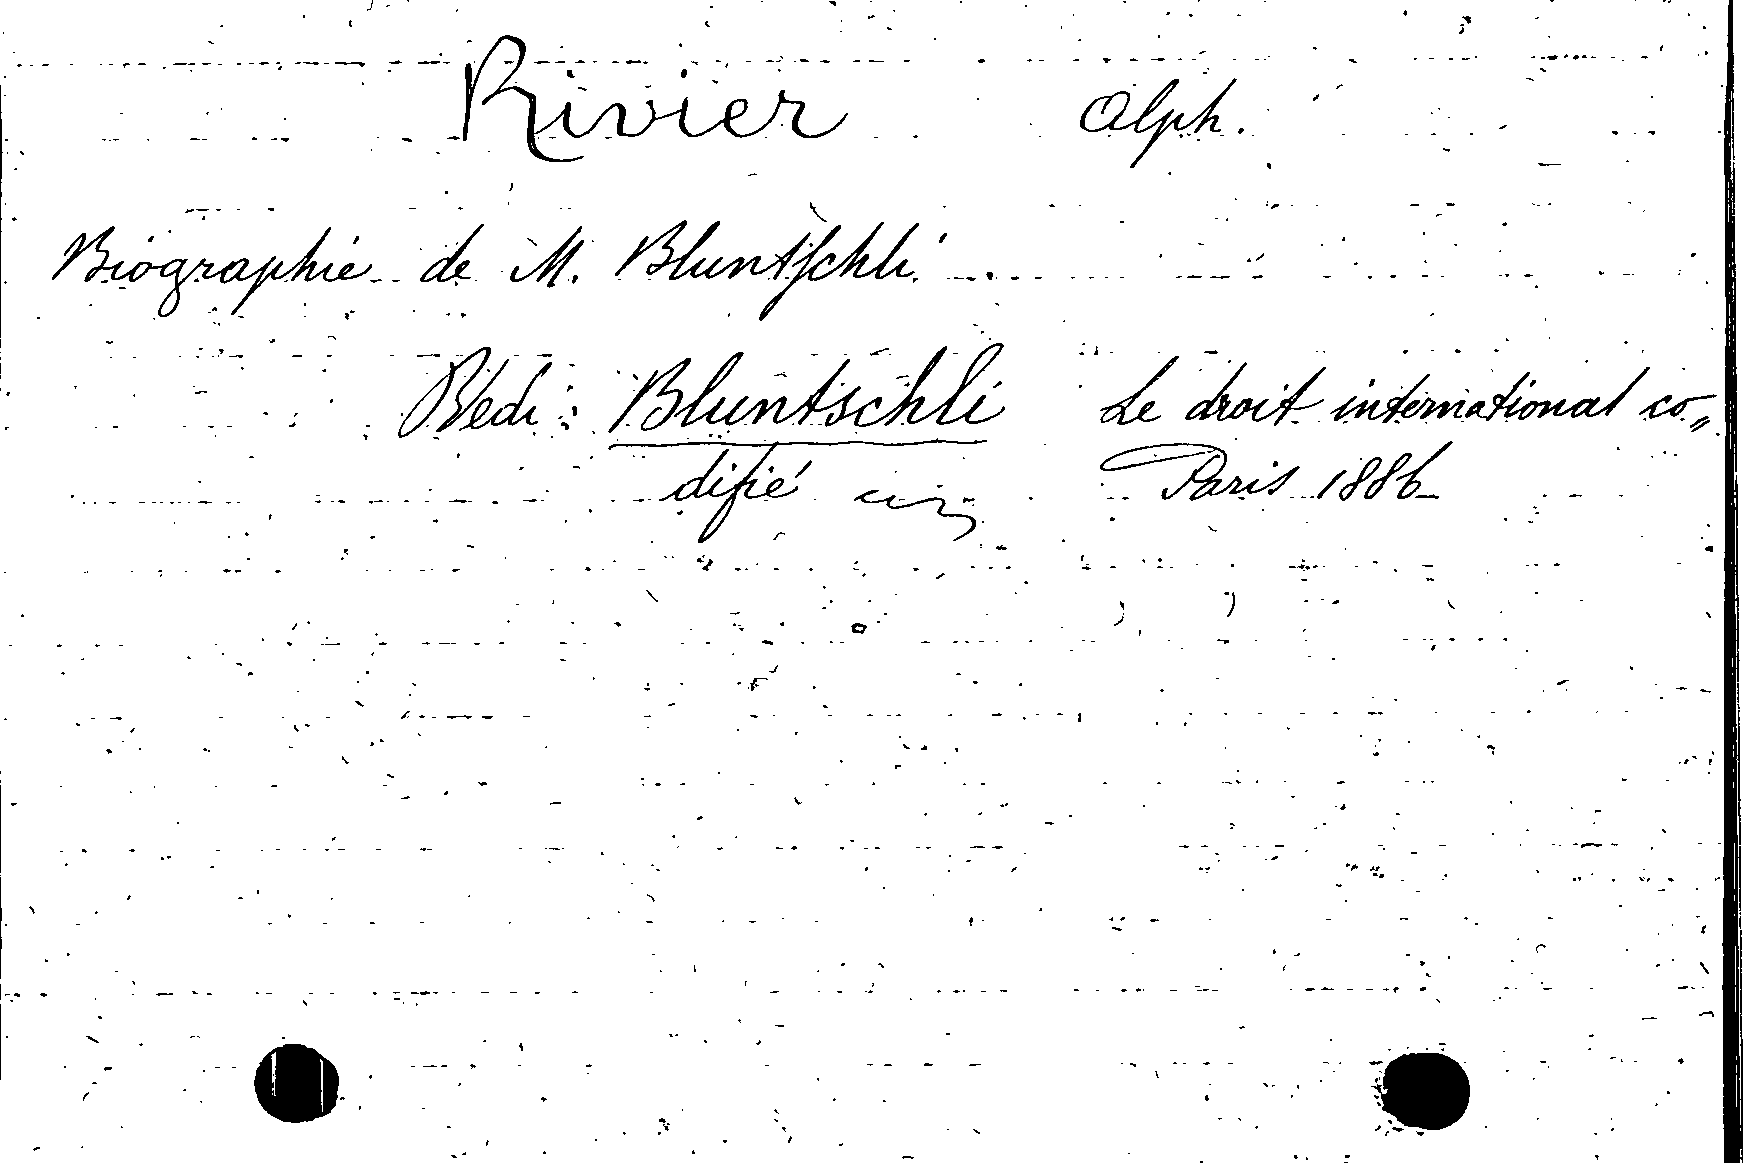 Rivier Alph.
Biographie de M. Bluntschli.
Vedi: Bluntschli Le droit international co„
difié Paris 1886